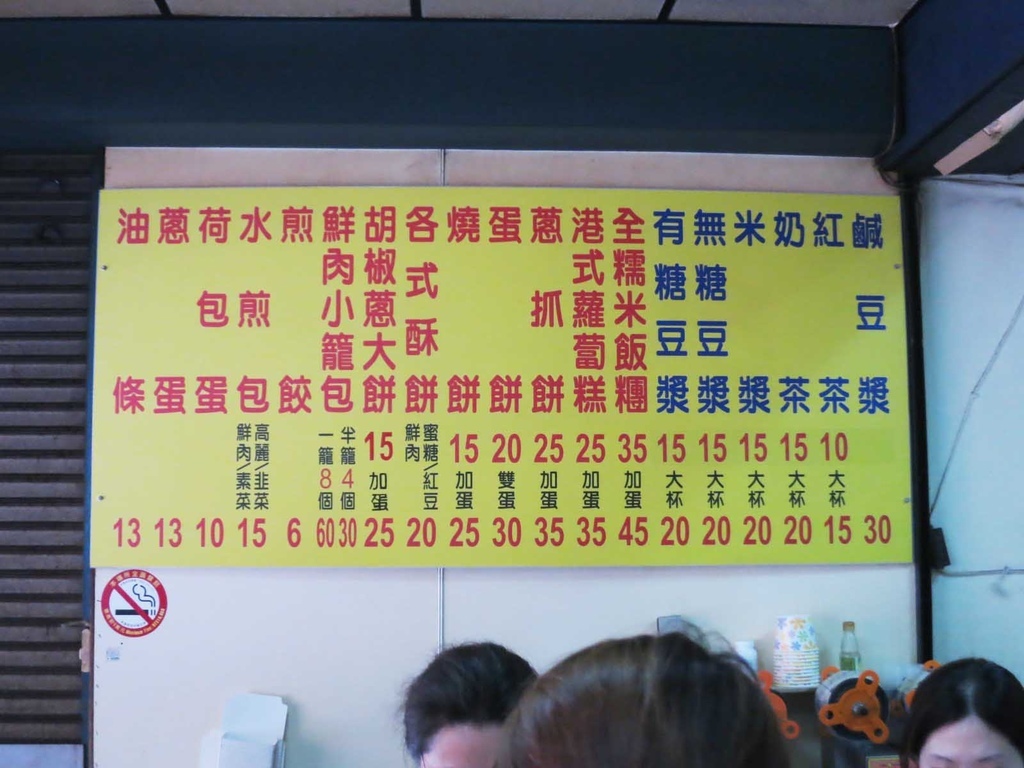 鹹豆漿 30
紅茶 10 大杯 15
奶茶 15 大杯 20
米漿 15 大杯 20
無糖豆漿 15 大杯 20
有糖豆漿 15 大杯 20
全糯米飯糰 35 加蛋 45
港式蘿蔔糕 25 加蛋 35
蔥抓餅 25 加蛋 35
蛋餅 20 雙蛋 30
燒餅 15 加蛋 25
各式酥餅 蜜糖/紅豆 鮮肉 20
胡椒蔥大餅 15 加蛋 25
鮮肉小籠包 半籠4個 30 一籠8個 60
煎餃 6
水煎包 高麗/韭菜 鮮肉/素菜 15
荷包蛋 10
蔥蛋 13
油條 13